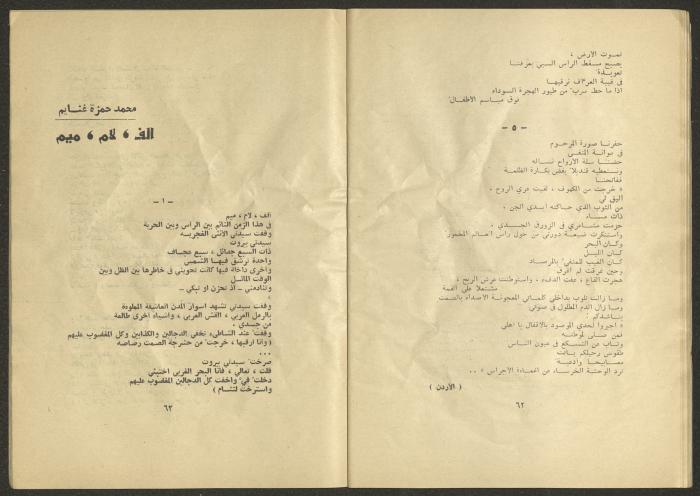 تموت الارض ،
يصبح مسقط الراس السبي بعرفنا
تعويذة
في قبة العراف ترقبها
اذا ما حط سرب من طيور الهجرة السوداء
فوق مياسم الاطفال
- ٥ -
حفرنا صورة المرحوم
في
حضنا سلة الارواح نسأله
ونستعطيه قنديلا بفض بكارة الظلمة
ففاتحنا
« خرجت من الكهوف ، لقيت مري الروح ،
اليق لي
من الثوب الذي حاكته ايدي الجن ،
ذات مساء
حزمت مشاعري في الزورق الجسدي ،
واستنكرت ضيعة دورتي من حول راس العالم المخمور
وكان البحر
كان الليل
كان الغيب للمنفي بالمرصاد
وحين غرقت لم اغرق
هجرت القاع ، عفت الدفء ، واستوطنت عرش الريح ،
مشتعلا على القمة
وما زالت تلوب بداخلي كلماتي المعجونة الاصداء بالصمت
وما زال الدم المطلول في صوتي
يناشدكم :
« اجيروا لحدي الموصود بالاقفال يا اهلي
فمن صلى لموطنه
وتاب عن التسكع في عيون الناس
طقوس رحيلكم باتت
مصابيحا وادعية
ترد الوحشة الخرساء عن اغماءة الاجراس » ..
( الأردن )
٦٢
محمد حمزة غنايم
الف ، لام ، ميم
- ١ -
الف ، لام ، ميم
في هذا الزمن النائم بين الراس وبين الحربة
وقفت سيدتي الانثى الغجرية
سيدتي بيروت
ذات السبع جدائل ، سبع عجاف
واحدة ترشق فيها الشمس
واخرى داخلة فيها كانت تحويني في خاطرها بين الظل وبين
الوقت المائل
وتنادمني - اذ نحزن او نبكي -
،
وقفت سيدتي تشهد اسوار المدن العاشقة المطوّدة
بالرمل العربي ، القش العربي ، واشياء اخرى طالعة
من جسدي .
وقفت عند الشاطىء تخفي الدجالين والكذابين وكل المغضوب عليهم
( وانا ارقبها ، خرجت من حشرجة الصمت رصاصه
...
صرخت سيدتي بيروت
قلت ، تعالي ، فانا البحر الغربي اختبئي
دخلت في واخفت كل الدجالين المغضوب عليهم
واسترخت لتنام )
٦٣